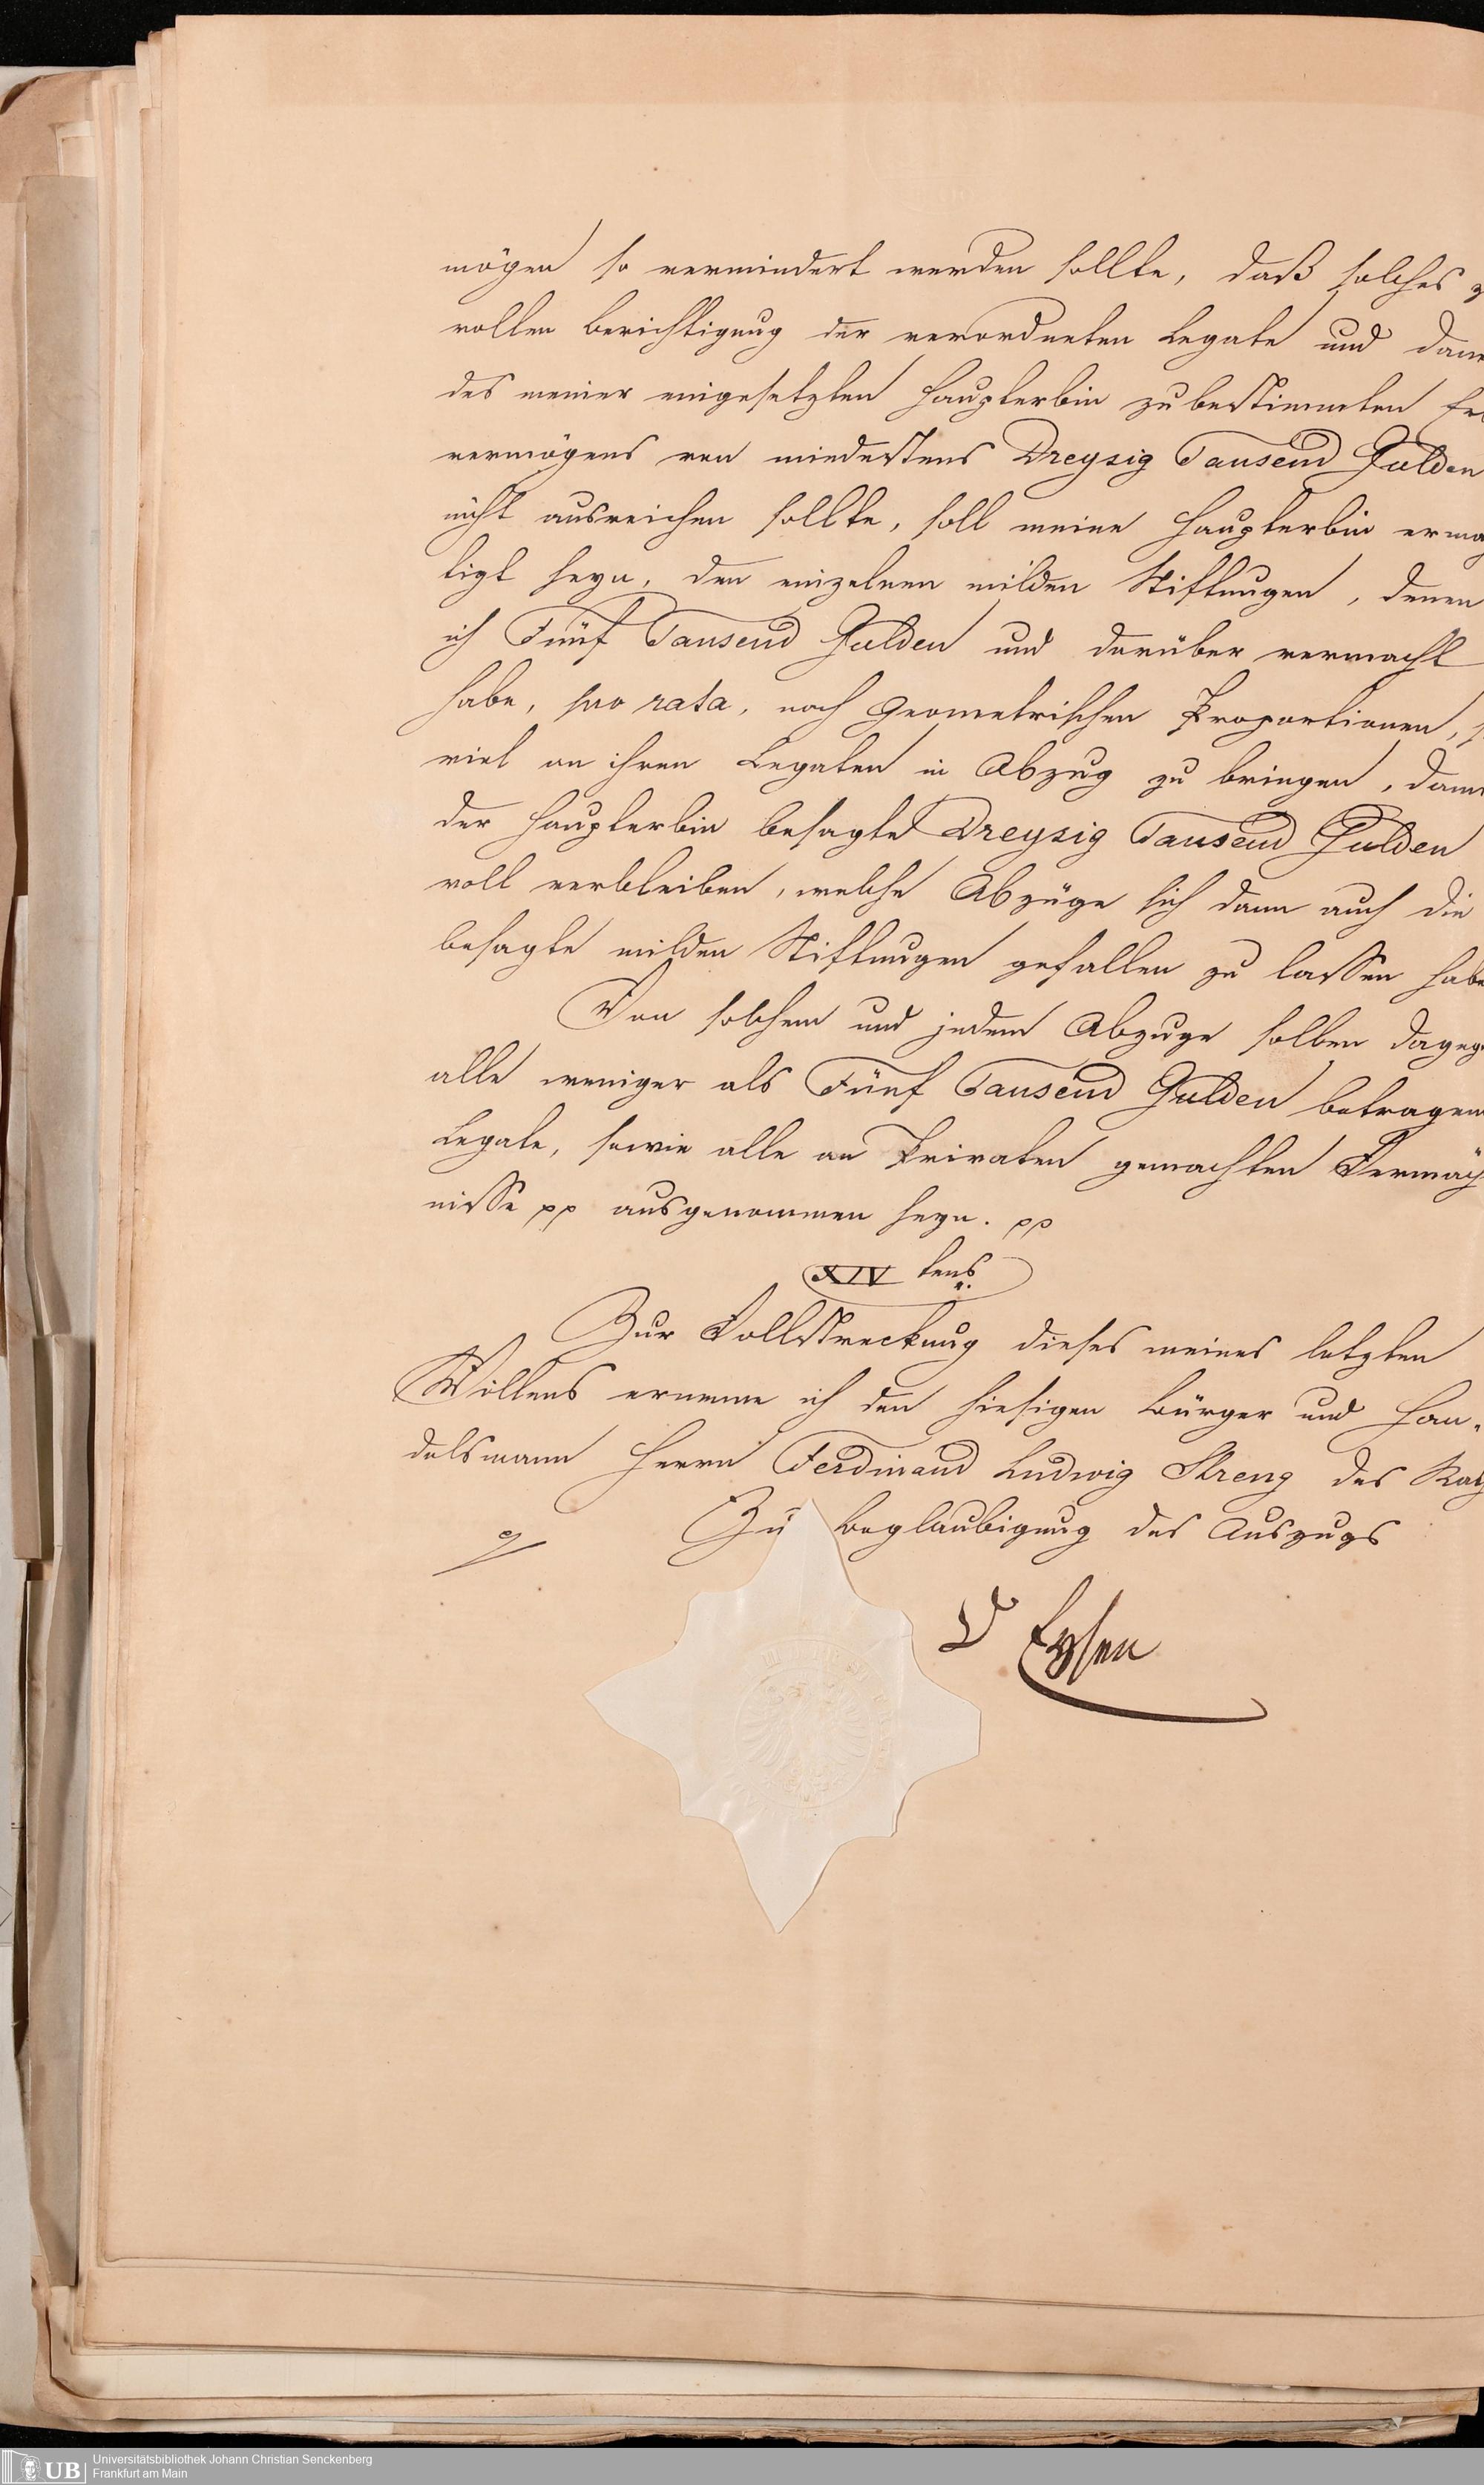 mögen so vermindert werden sollte, daß solches z
vollen Berichtigung der verordneten Legate und dann
des meiner eingesetzten Haupterbin zubestimmten Er
vermögens von mindestens Dreysig Tausend Gulden
nicht ausreichen sollte, soll meine Haupterbin ermä
tigt seyn, den einzelnen milden Stiftungen, denen
ich Fünf Tausend Gulden und darüber vermacht
habe, pro rata, nach Geometrischen Proportionen, s
viel an ihren Legaten in Abzug zu bringen, dam
der Haupterbin besagte Dreysig Tausend Gulden
voll verbleiben, welche Abzüge sich dann auch die
besagte milden Stiftungen gefallen zu lassen habe
Von solchem und jedem Abzuge sollen dageg
alle weniger als Fünf Tausend Gulden betragen
Legate, sowie alle an Privaten gemachten Vermäch
nisse pp ausgenommen seyn. pp
XIV tens
Zur Vollstreckung dieses meines letzten
Willens ernenne ich den hiesigen Bürger und Han-
delsmann Herrn Ferdinand Ludwig Streng des Rath
Zu Beglaubigung des Auszugs
D Eysen
UB
Universitätsbibliothek Johann Christian Senckenberg
Frankfurt am Main